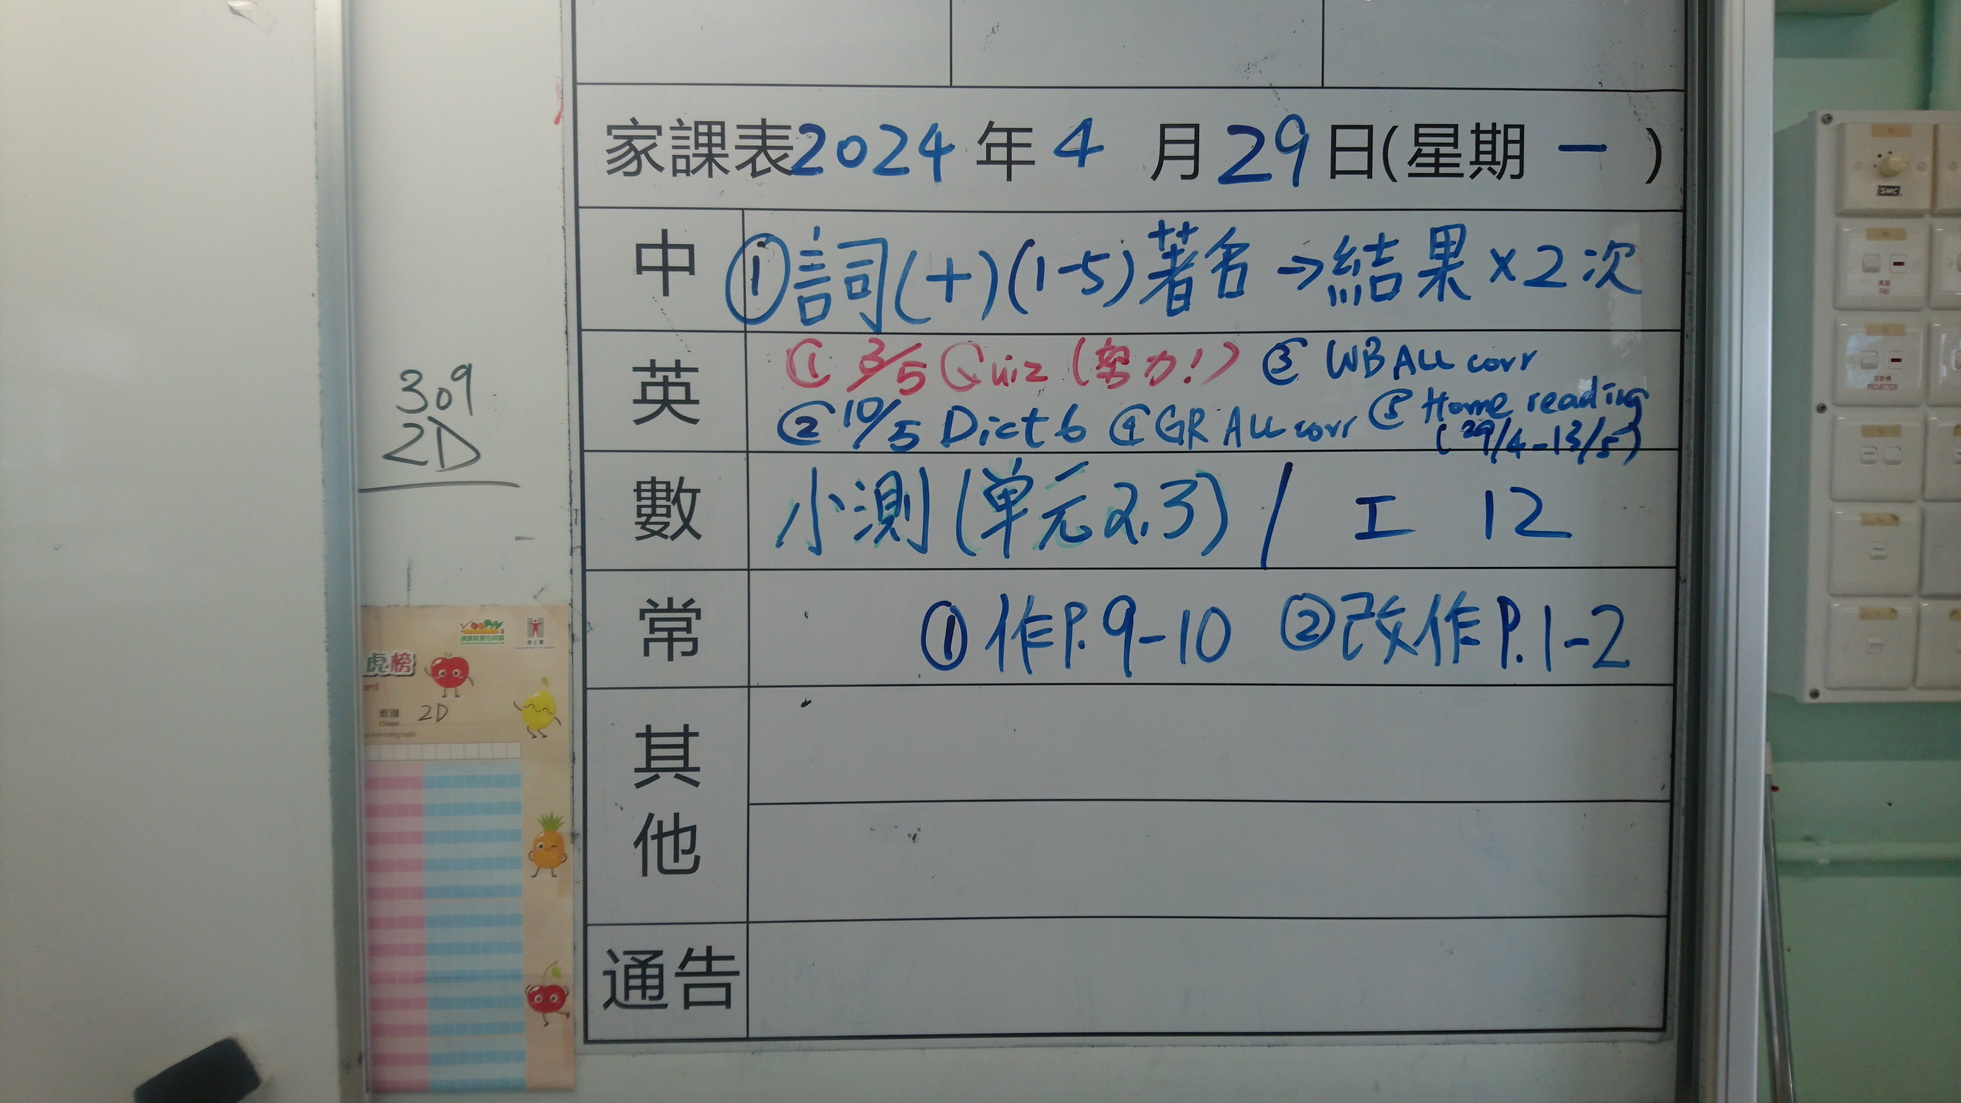 家課表2024年4月29日(星期一)
309
2D
中 ①詞(十)(1-5)著名→結果×2次
英 ① 3/5 Quiz (努力!) ③ WB ALL corr
② 10/5 Dict 6 ④ GR ALL corr ⑤ Home reading
(29/4-13/5)
數 小測(单元2,3) / 工 12
常 ①作P.9-10 ②改作P.1-2
其他
通告
虎榜
班別 2D
Class
PROJECTOR